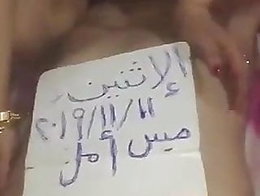 الإثنين
٢٠١٩/١١/١١
ميس أمل